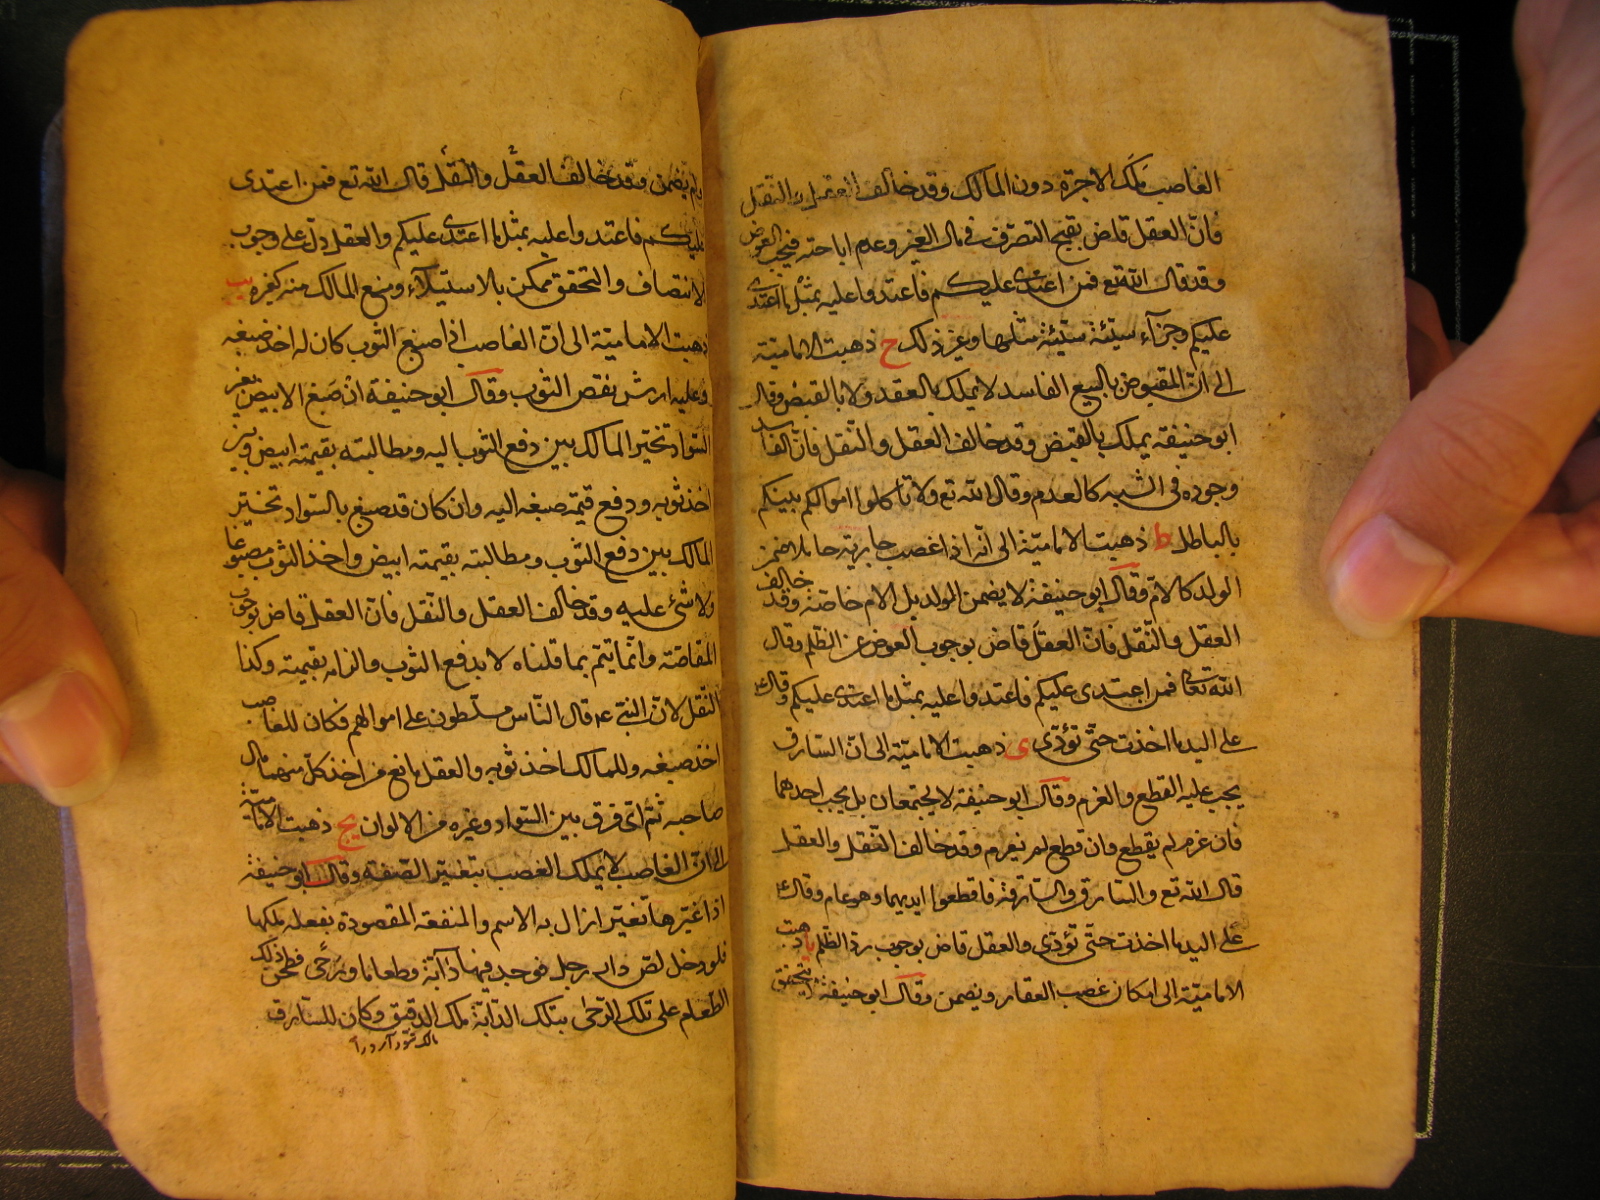 الغاصب ملك الاجرة دون المالك وقد خالف العقل والنقل
فان العقل قاض بقبح التصرف في مال الغير وعدم اباحته فيجب العوض
وقد قال الله تع فمن اعتدى عليكم فاعتدوا عليه بمثل ما اعتدى
عليكم وجزآء سيئة سيئة مثلها وغير ذلك ح ذهبت الامامية
الى ان المقبوض بالبيع الفاسد لا يملك بالعقد ولا بالقبض وقال
ابو حنيفة يملك بالقبض وقد خالف العقل والنقل فان الفاسد
وجوده في الشبه كالعدم وقال الله تع ولا تاكلوا اموالكم بينكم
بالباطل ط ذهبت الامامية الى انه اذا غصب جارية حاملا ضمن
الولد كالام وقال ابو حنيفة لا يضمن الولد بل الام خاصة وقد خالف
العقل والنقل فان العقل قاض بوجوب العوض عن الظلم وقال
الله تعالى فمن اعتدى عليكم فاعتدوا عليه بمثل ما اعتدى عليكم وقال ع
على اليد ما اخذت حتى تؤدى ى ذهبت الامامية الى ان السارق
يجب عليه القطع والغرم وقال ابو حنيفة لا يجتمعان بل يجب احدهما
فان غرم لم يقطع وان قطع لم يغرم وقد خالف النقل والعقل
قال الله تع والسارق والسارقة فاقطعوا ايديهما وهو عام وقال ع
على اليد ما اخذت حتى تؤدى والعقل قاض بوجوب رد الظلم يا ذهبت
الامامية الى امكان غصب العقار ويضمن وقال ابو حنيفة لا يتحقق
ولم يضمن وقد خالف العقل والنقل قال الله تع فمن اعتدى
عليكم فاعتدوا عليه بمثل ما اعتدى عليكم والعقل دل على وجوب
الانتصاف والتحقق ممكن بالاستيلآء ومنع المالك منه كغيره يب
ذهبت الامامية الى ان الغاصب اذا صبغ الثوب كان له اخذ صبغه
وعليه ارش نقص الثوب وقال ابو حنيفة ان صبغ الابيض بغير
السواد تخير المالك بين دفع الثوب اليه ومطالبته بقيمته ابيض وبين
اخذ ثوبه ودفع قيمة صبغه اليه وان كان قد صبغ بالسواد تخير
المالك بين دفع الثوب ومطالبته بقيمته ابيض واخذ الثوب مصبوغا
ولا شئ عليه وقد خالف العقل والنقل فان العقل قاض بوجوب
المقاصة وانما يتم بما قلناه لا بدفع الثوب والزامه بقيمته وكذا
النقل لان النبي ع قال الناس مسلطون على اموالهم فكان للغاصب
اخذ صبغه وللمالك اخذ ثوبه والعقل مانع من اخذ كل منهما مال
صاحبه ثم اى فرق بين السواد وغيره من الالوان يج ذهبت الامامية
الى ان الغاصب لا يملك الغصب بتغيير الصفة وقال ابو حنيفة
اذا غيرها تغيرا ازال به الاسم والمنفعة المقصودة بفعله ملكها
فلو دخل لص دار رجل فوجد فيها دآبة وطعاما ورحى فطحن ذلك
الطعام على تلك الرحى بتلك الدابة ملك الدقيق وكان للسارق